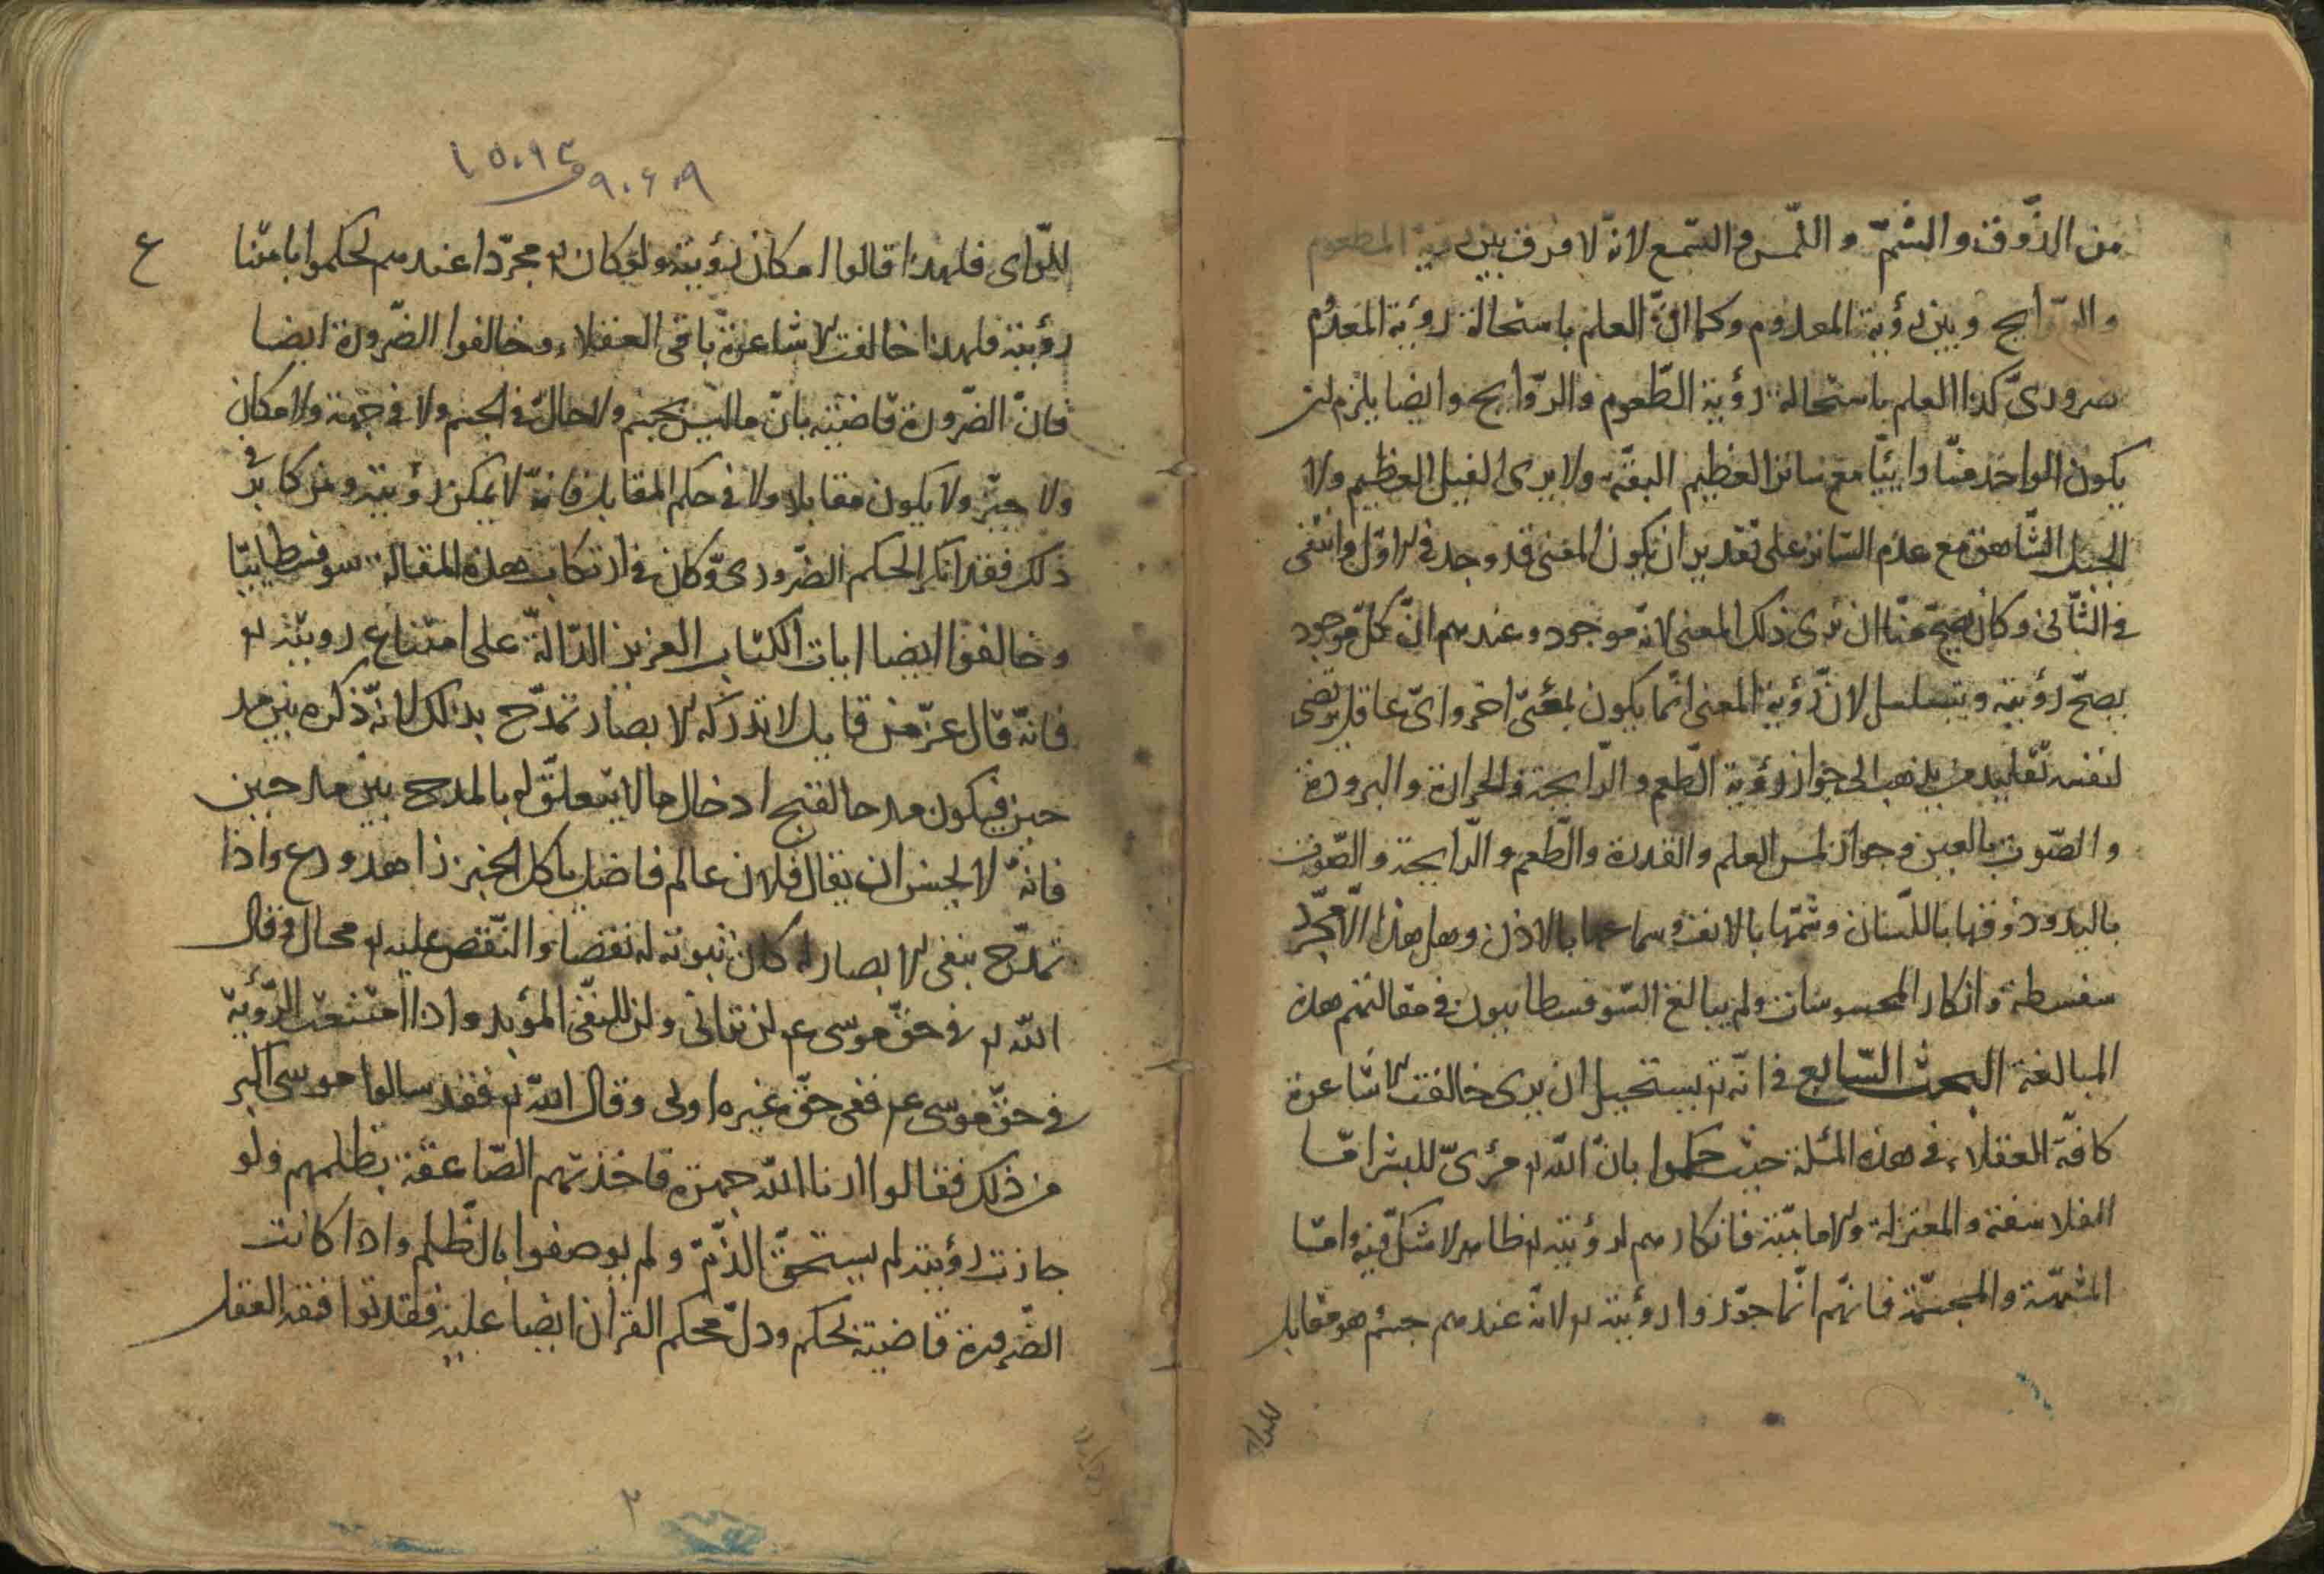 من الذّوق والشّمّ و اللّمس و السّمع لانّه لا فرق بين رؤية المطعوم
والرّوايح و بين رؤية المعدوم وكما انّ العلم باستحالة رؤية المعدوم
ضرورىّ كذا العلم باستحالة رؤية الطّعوم والرّوايح وايضا يلزم ان
يكون الواحد منّا رائيا مع ساتر العظيم البقّة ولا يرى الفيل العظيم ولا
الجبل الشّاهق مع عدم السّاتر على تقدير ان يكون المعنى قد وجد فى الاوّل وانتفى
فى الثّانى وكان يصحّ منّا ان نرى ذلك المعنى لانّه موجود وعندهم انّ كلّ موجود
يصحّ رؤيته ويتسلسل لانّ رؤية المعنى انّما يكون لمعنى آخر واىّ عاقل يرتضى
لنفسه تقليد من يذهب الى جواز رؤية الطّعم والرّايحة والحرارة والبرودة
والصّوت بالعين وجواز لمس العلم والقدرة والطّعم والرّايحة والصّوت
باليد وذوقها باللّسان وشمّها بالانف وسماعها بالاذن وهل هذا الّا مجرّد
سفسطة وانكار المحسوسات ولم يبالغ السّوفسطائيون فى مقالتهم هذه
المبالغة البحث السّابع فى انّه تع يستحيل ان يرى خالفت الاشاعرة
كافّة العقلاء فى هذه المسئلة حيث حكموا بانّ اللّه تع مرئىّ للبشر امّا
الفلاسفة والمعتزلة والاماميّة فانكارهم لرؤيته تع ظاهر لا شكّ فيه وامّا
المشبّهة والمجسّمة فانّهم انّما جوّزوا رؤيته تع لانّه عندهم جسم هو مقابل
للرّائى
١٥٠٩٣
٩٠٦٠٩
ع
للرّاى فلهذا قالوا امكان رؤيته ولو كان تع مجرّدا عندهم لحكموا بامتناع
رؤيته فلهذا خالفت الاشاعرة باقى العقلاء وخالفوا الضّرورة ايضا
فانّ الضّرورة قاضية بانّ ما ليس بجسم ولا حالّ فى الجسم ولا فى جهة ولا مكان
ولا حيّز ولا يكون مقابلا ولا فى حكم المقابل فانّه لا يمكن رؤيته ومن كابر فى
ذلك فقد انكر الحكم الضّرورىّ وكان فى ارتكاب هذه المقالة سوفسطائيّا
وخالفوا ايضا ايات الكتاب العزيز الدّالّة على امتناع رويته تع
فانّه قال عزّ من قايل لا تدركه الابصار تمدّح بذلك لانّه ذكره بين مد
حين فيكون مدحا لقبح ادخال ما لا يتعلّق له بالمدح بين مدحين
فانّه لا يحسن ان يقال فلان عالم فاضل ياكل الخبز زاهد ورع واذا
تمدّح بنفى الابصار له كان ثبوته له نقصا والنّقص عليه تع محال وقال
اللّه تع فى حقّ موسى ع م لن ترانى ولن للنّفى المؤبد واذا امتنعت الرّؤية
فى حقّ موسى ع م ففى حقّ غيره اولى وقال اللّه تع فقد سالوا موسى اكبر
من ذلك فقالوا ارنا اللّه جهرة فاخذتهم الصّاعقة بظلمهم ولو
جازت رؤيته لم يستحقّ الذّمّ ولم يوصفوا بالظّلم واذا كانت
الضّرورة قاضية بحكم ودلّ محكم القرآن ايضا عليه فقد توافقه العقل
٢